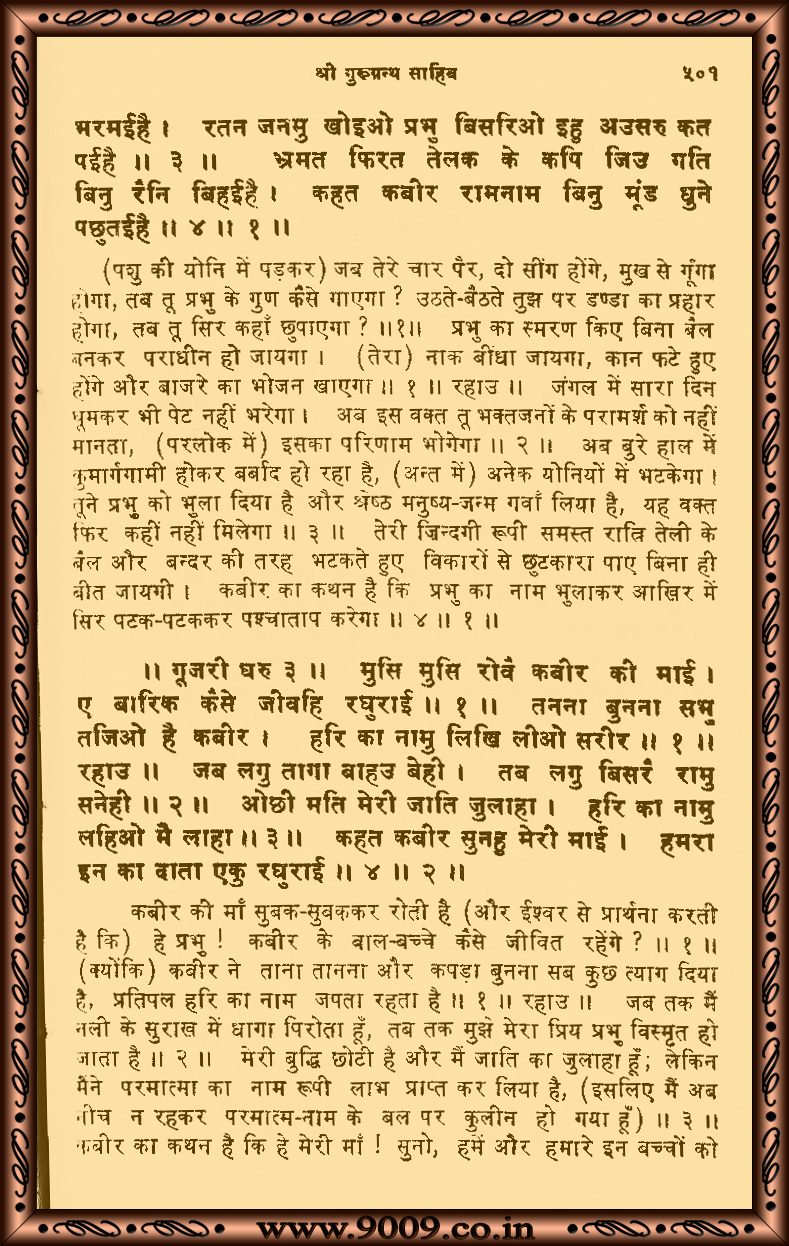 श्री गुरूग्रन्थ साहिब ५०१
भरमईहै। रतन जनमु खोइओ प्रभु बिसरिओ इहु अउसरु कत
पईहै ॥ ३ ॥ भ्रमत फिरत तेलक के कपि जिउ गति
बिनु रैनि बिहईहै। कहत कबीर रामनाम बिनु मूंड धुने
पछुतईहै ॥ ४ ॥ १ ॥
(पशु की योनि में पड़कर) जब तेरे चार पैर, दो सींग होंगे, मुख से गूंगा
होगा, तब तू प्रभु के गुण कैसे गाएगा ? उठते-बैठते तुझ पर डण्डा का प्रहार
होगा, तब तू सिर कहाँ छुपाएगा ? ॥१॥ प्रभु का स्मरण किए बिना बैल
बनकर पराधीन हो जायगा । (तेरा) नाक बींधा जायगा, कान फटे हुए
होंगे और बाजरे का भोजन खाएगा ॥ १ ॥ रहाउ ॥ जंगल में सारा दिन
घूमकर भी पेट नहीं भरेगा । अब इस वक्त तू भक्तजनों के परामर्श को नहीं
मानता, (परलोक में) इसका परिणाम भोगेगा ॥ २ ॥ अब बुरे हाल में
कुमार्गगामी होकर बर्बाद हो रहा है, (अन्त में) अनेक योनियों में भटकेगा ।
तूने प्रभु को भुला दिया है और श्रेष्ठ मनुष्य-जन्म गवाँ लिया है, यह वक्त
फिर कहीं नहीं मिलेगा ॥ ३ ॥ तेरी ज़िन्दगी रूपी समस्त रात्रि तेली के
बैल और बन्दर की तरह भटकते हुए विकारों से छुटकारा पाए बिना ही
बीत जायगी । कबीर का कथन है कि प्रभु का नाम भुलाकर आखिर में
सिर पटक-पटककर पश्चाताप करेगा ॥ ४ ॥ १ ॥
॥ गूजरी घरु ३ ॥ मुसि मुसि रोवै कबीर की माई ।
ए बारिक कैसे जीवहि रघुराई ॥ १ ॥ तनना बुनना सभु
तजिओ है कबीर । हरि का नामु लिखि लीओ सरीर ॥ १ ॥
रहाउ ॥ जब लगु तागा बाहउ बेही । तब लगु बिसरै रामु
सनेही ॥ २ ॥ ओछी मति मेरी जाति जुलाहा । हरि का नामु
लहिओ मै लाहा ॥ ३ ॥ कहत कबीर सुनहु मेरी माई । हमरा
इन का दाता एकु रघुराई ॥ ४ ॥ २ ॥
कबीर की माँ सुबक-सुबककर रोती है (और ईश्वर से प्रार्थना करती
है कि) हे प्रभु ! कबीर के बाल-बच्चे कैसे जीवित रहेंगे ? ॥ १ ॥
(क्योंकि) कबीर ने ताना तानना और कपड़ा बुनना सब कुछ त्याग दिया
है, प्रतिपल हरि का नाम जपता रहता है ॥ १ ॥ रहाउ ॥ जब तक मैं
नली के सुराख में धागा पिरोता हूँ, तब तक मुझे मेरा प्रिय प्रभु विस्मृत हो
जाता है ॥ २ ॥ मेरी बुद्धि छोटी है और मैं जाति का जुलाहा हूँ; लेकिन
मैंने परमात्मा का नाम रूपी लाभ प्राप्त कर लिया है, (इसलिए मैं अब
नीच न रहकर परमात्म-नाम के बल पर कुलीन हो गया हूँ) ॥ ३ ॥
कबीर का कथन है कि हे मेरी माँ ! सुनो, हमें और हमारे इन बच्चों को
www.9009.co.in